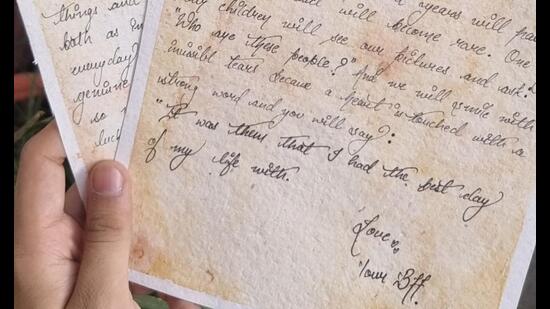 things and
both as
everyday?
genuine
so
luck
years will pass
will become rare. One
day children will see our pictures and ask:
"Who are these people?" And we will smile with
invisible tears because a heart is touched with a
strong word and you will say:
"It was them that I had the best day
of my life with.
Love,
Your Bff.